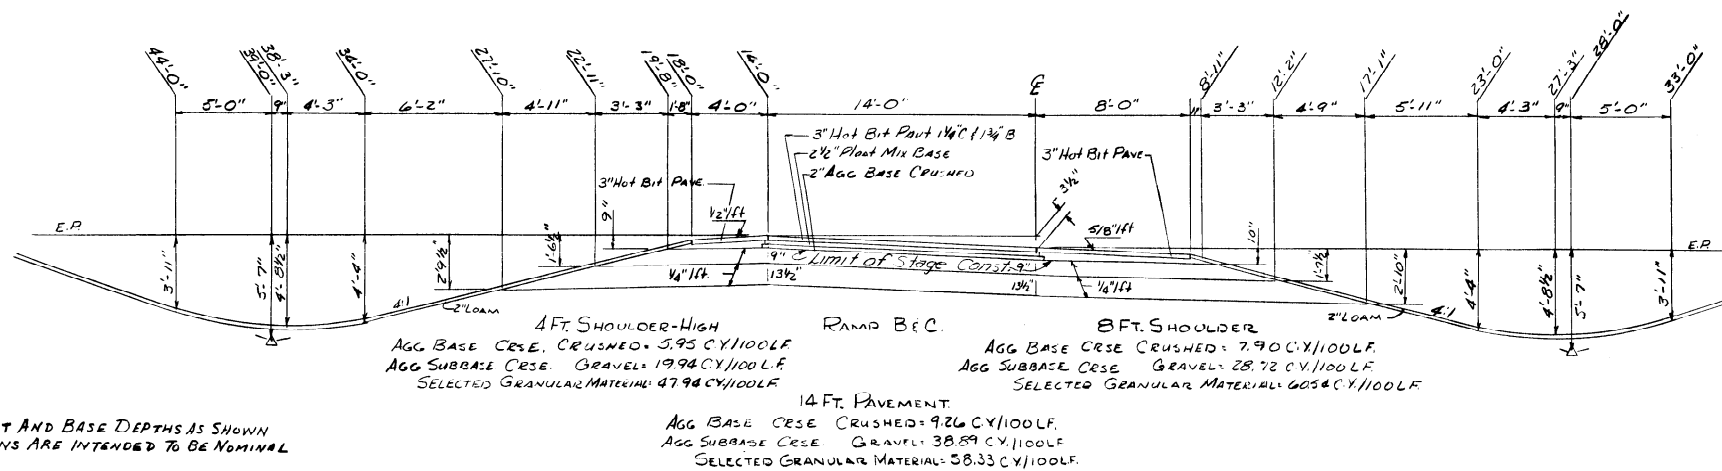 44'-0"
39'-0"
38'-3"
34'-0"
27'-10"
22'-11"
19'-8"
18'-0"
14'-0"
℄
8'-11"
12'-2"
17'-1"
23'-0"
27'-3"
28'-0"
33'-0"
5'-0" 9" 4'-3" 6'-2" 4'-11" 3'-3" 1'-8" 4'-0" 14'-0" 8'-0" 11" 3'-3" 4'-9" 5'-11" 4'-3" 9" 5'-0"
3" Hot Bit Pav't 1¼" C & 1¾" B
2½" Plant Mix Base
2" Agg Base Crushed
3" Hot Bit Pave
3" Hot Bit Pave.
½"/ft
3½"
5/8"/ft
E.P.
E.P.
9"
10"
3'-11"
5'-7"
4'-8½"
4'-4"
2'-9½"
1'-6½"
1'-7½"
2'-10"
4'-4"
4'-8½"
5'-7"
3'-11"
9" Limit of Stage Const. 9"
¼"/ft. 13½" 13½" ¼"/ft
4:1 2" LOAM
2" LOAM 4:1
4 FT. SHOULDER-HIGH
AGG BASE CRSE. CRUSHED= 5.95 C.Y./100 L.F.
AGG SUBBASE CRSE. GRAVEL= 19.94 C.Y./100 L.F.
SELECTED GRANULAR MATERIAL= 47.94 C.Y./100 L.F.
RAMP B & C.
8 FT. SHOULDER
AGG BASE CRSE CRUSHED= 7.90 C.Y./100 L.F.
AGG SUBBASE CRSE GRAVEL= 28.72 C.Y./100 L.F.
SELECTED GRANULAR MATERIAL= 60.54 C.Y./100 L.F.
14 FT. PAVEMENT
AGG BASE CRSE CRUSHED= 9.26 C.Y./100 L.F.
AGG SUBBASE CRSE. GRAVEL= 38.89 C.Y./100 L.F.
SELECTED GRANULAR MATERIAL= 58.33 C.Y./100 L.F.
T AND BASE DEPTHS AS SHOWN
NS ARE INTENDED TO BE NOMINAL